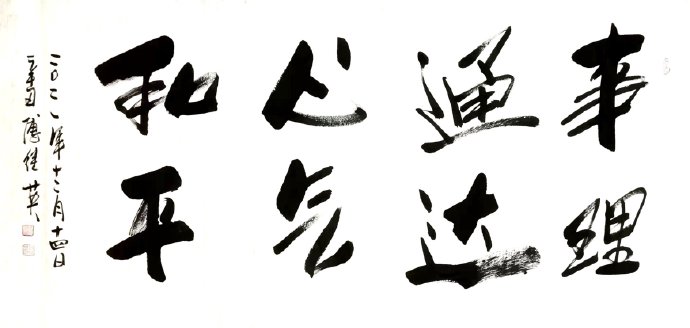 事理
通达
心气
和平
二〇二一年十二月十四日
辛丑 英